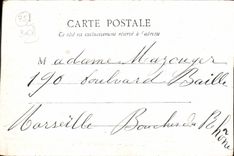 CARTE POSTALE
Ce côté est exclusivement réservé à l'adresse
Madame Mazoyer
190 boulevard Baille
Marseille Bouches du Rhône